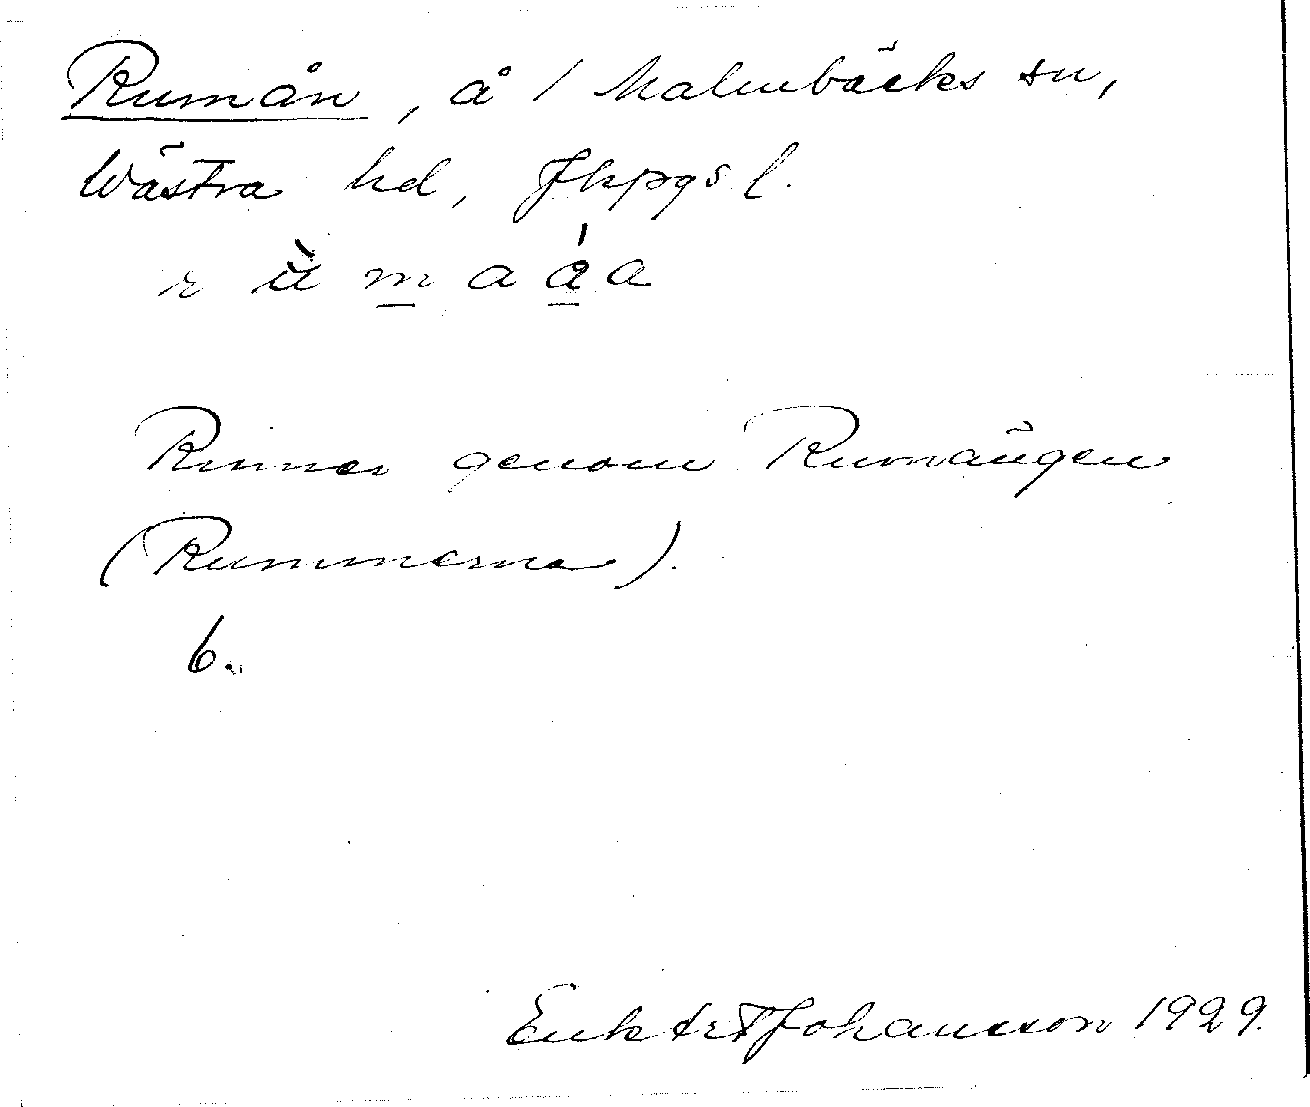 Rumån, å i Malmbäcks sn,
Västra hd, Jkpgs l.
r ù m a ǻ a
Rinner genom Rumängen
(Rummerna).
b.
Johansson 1929.